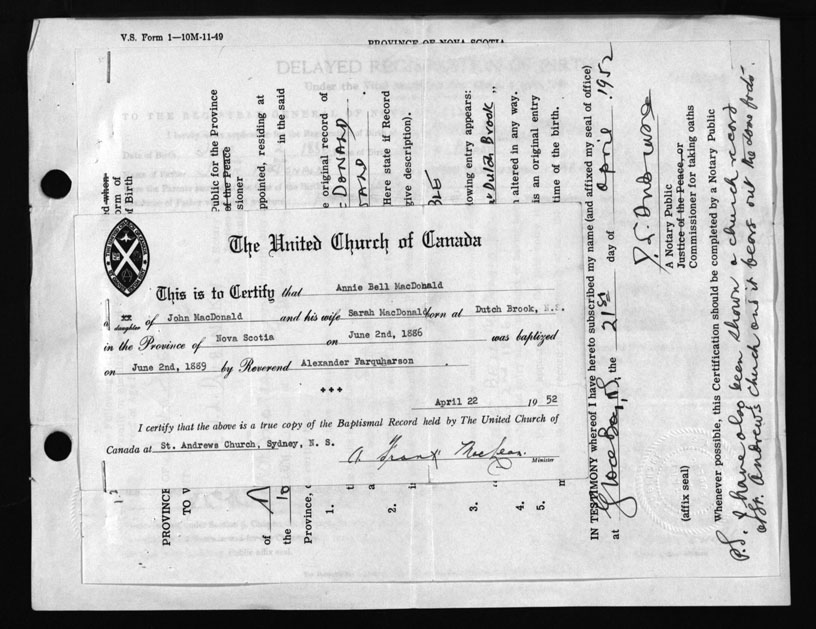 V.S. Form 1—10M-11-49
PROVINCE OF NOVA SCOTIA
DELAYED REGISTRATION OF BIRTH
The United Church of Canada
This is to Certify that Annie Bell MacDonald
a daughter of John MacDonald and his wife Sarah MacDonald born at Dutch Brook, N.S.
in the Province of Nova Scotia on June 2nd, 1886 was baptized
on June 2nd, 1889 by Reverend Alexander Farquharson
+++
April 22 1952
I certify that the above is a true copy of the Baptismal Record held by The United Church of
Canada at St. Andrews Church, Sydney, N. S.
A Frank MacLean
Minister
when
orm of
f Birth
Public for the Province
of the Peace
sioner
ppointed, residing at
in the said
e original record of
c DONALD
Here state if Record
give description).
BLE
lowing entry appears:
at Dutch Brook "
n altered in any way.
is an original entry
time of the birth.
PROVINCE
TO W
of
the
Province,
1.
2.
3.
4.
5.
IN TESTIMONY whereof I have hereto subscribed my name (and affixed my seal of office)
at Glace Bay, N.S. the 21st day of April 1952
A Notary Public
Justice of the Peace, or
Commissioner for taking oaths
(affix seal)
Whenever possible, this Certification should be completed by a Notary Public
P.S. I have also been shown a church record
of St. Andrew's Church and it bears out the done